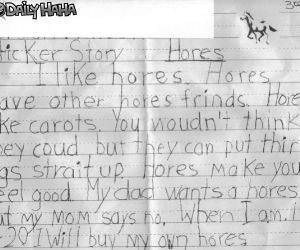 DAILY HAHA
icker Story Hores
I like hores. Hores
ave other hores frinds. Hore
ke carots. You woudn't think
hey coud but they can put thir
gs strait up. Hores make you
eel good. My dad wants a hores
ut my mom says no. When I am
20 I will buy my own hores